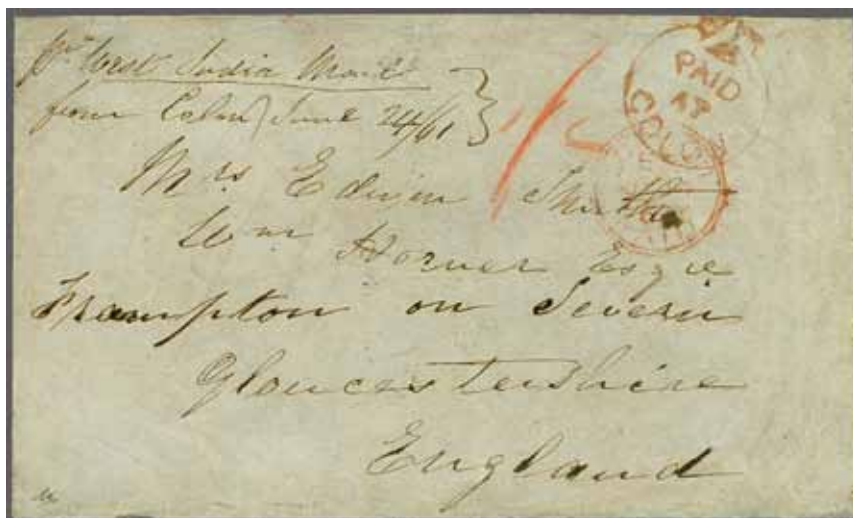 pr West India Mail
from Colon June 24/61
PAID
AT
COLON
Mrs Edwin Smith
Wm Horner Esqre
Frampton on Severn
Gloucestershire
England